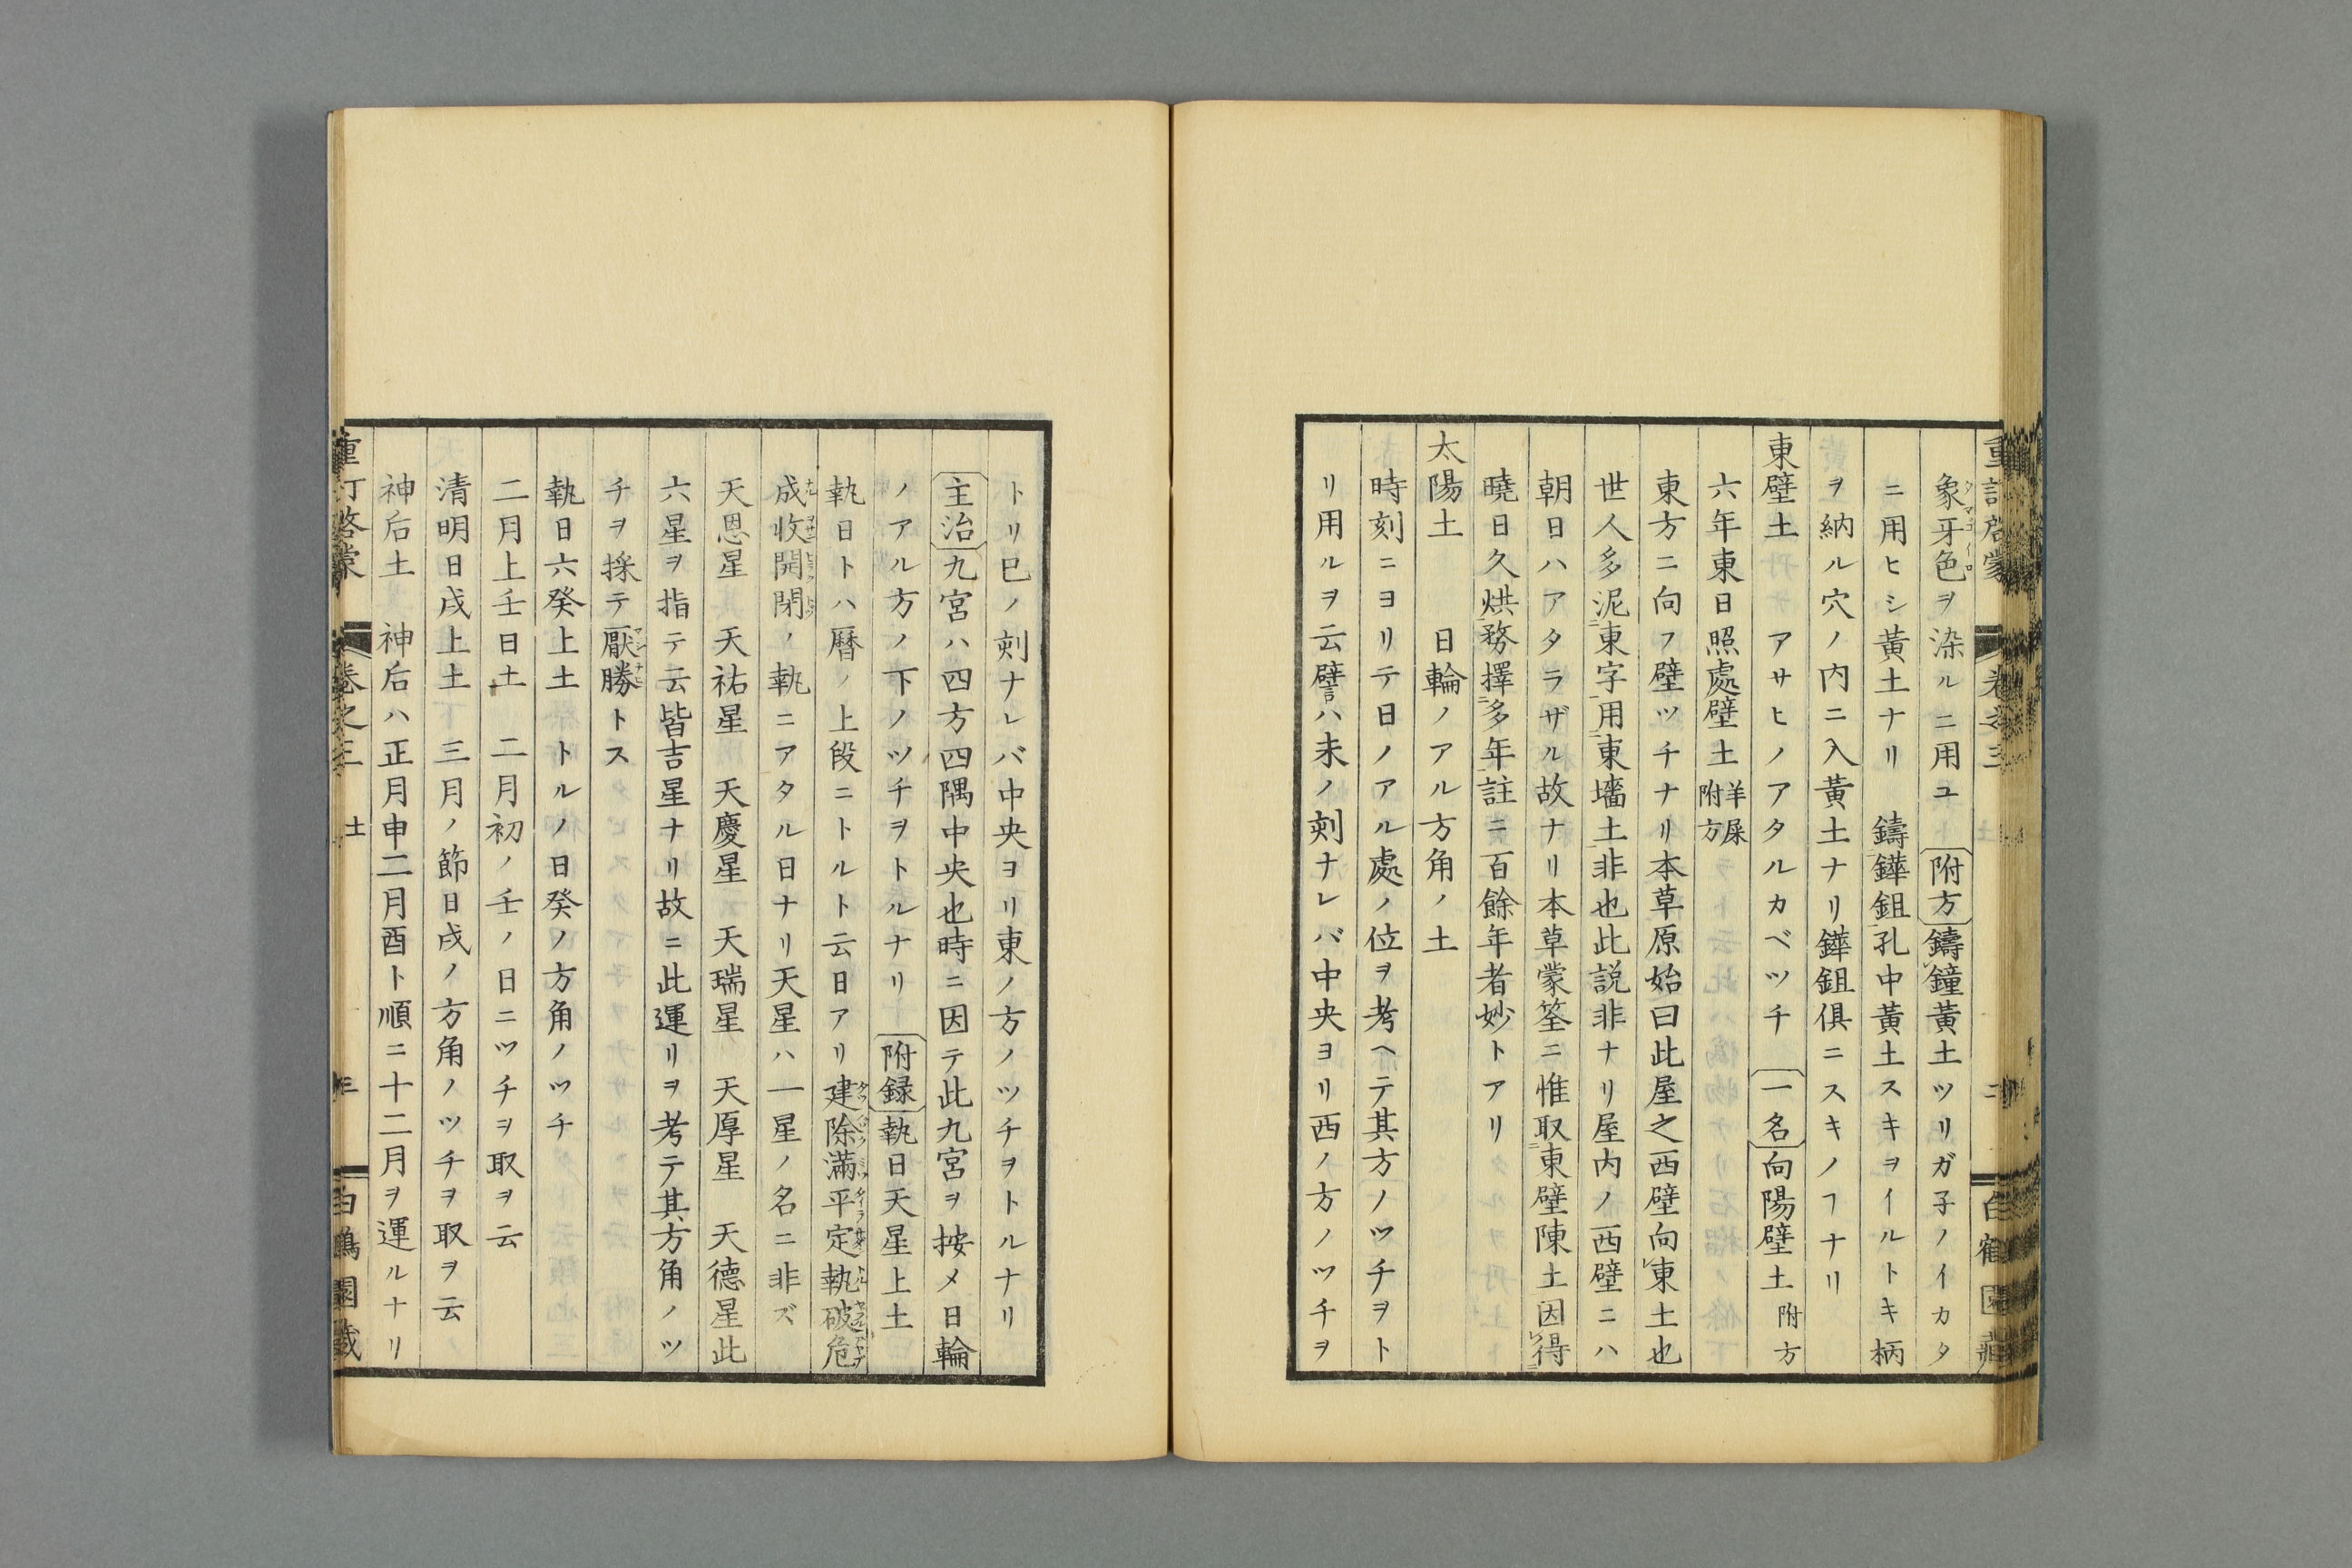 重訂啓蒙 卷之三 土 二 白鶴園藏
象牙色ヲ染ルニ用ユ 附方 鑄鐘黄土ツリガ子ノイカタ
ニ用ヒシ黄土ナリ 鑄鏵鉏孔中黄土スキヲイルトキ柄
ヲ納ル穴ノ内ニ入黄土ナリ鏵鉏俱ニスキノフナリ
東壁土 アサヒノアタルカベツチ 一名 向陽壁土附方
六年東日照處壁土羊屎附方
東方ニ向フ壁ツチナリ本草原始曰此屋之西壁向東土也
世人多泥東字用東墻土非也此説非ナリ屋内ノ西壁ニハ
朝日ハアタラザル故ナリ本草蒙筌ニ惟取東壁陳土因得
曉日久烘務擇多年註ニ百餘年者妙トアリ
太陽土 日輪ノアル方角ノ土
時刻ニヨリテ日ノアル處ノ位ヲ考ヘテ其方ノツチヲト
リ用ルヲ云譬ハ未ノ刻ナレバ中央ヨリ西ノ方ノツチヲ
トリ巳ノ刻ナレバ中央ヨリ東ノ方ノツチヲトルナリ
主治 九宮ハ四方四隅中央也時ニ因テ此九宮ヲ按メ日輪
ノアル方ノ下ノツチヲトルナリ 附録 執日天星上土
執日トハ暦ノ上段ニトルト云日アリ建除滿平定執破危
成收開閉ノ執ニアタル日ナリ天星ハ一星ノ名ニ非ズ
天恩星 天祐星 天慶星 天瑞星 天厚星 天德星此
六星ヲ指テ云皆吉星ナリ故ニ此運リヲ考テ其方角ノツ
チヲ採テ厭勝トス
執日六癸上土 トルノ日癸ノ方角ノツチ
二月上壬日土 二月初ノ壬ノ日ニツチヲ取ヲ云
清明日戌上土 三月ノ節日戌ノ方角ノツチヲ取ヲ云
神后土 神后ハ正月申二月酉ト順ニ十二月ヲ運ルナリ
重訂啓蒙 卷之三 土 三 白鶴園藏